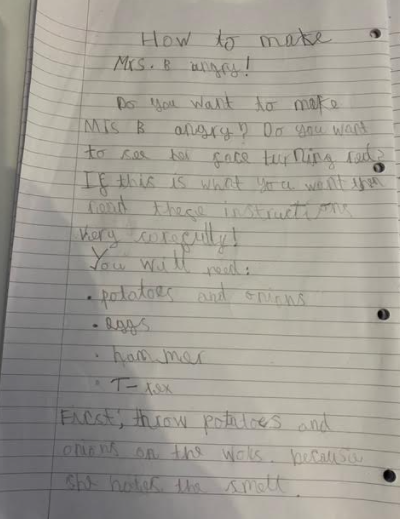 How to make
Mrs. B angry!
Do you want to make
Mrs B angry? Do you want
to see her face turning red?
If this is what you want then
read these instructions
very carefully!
You will need:
• potatoes and onions
• eggs
• hammer
• T-rex
First, throw potatoes and
onions on the because
she hates the smell.